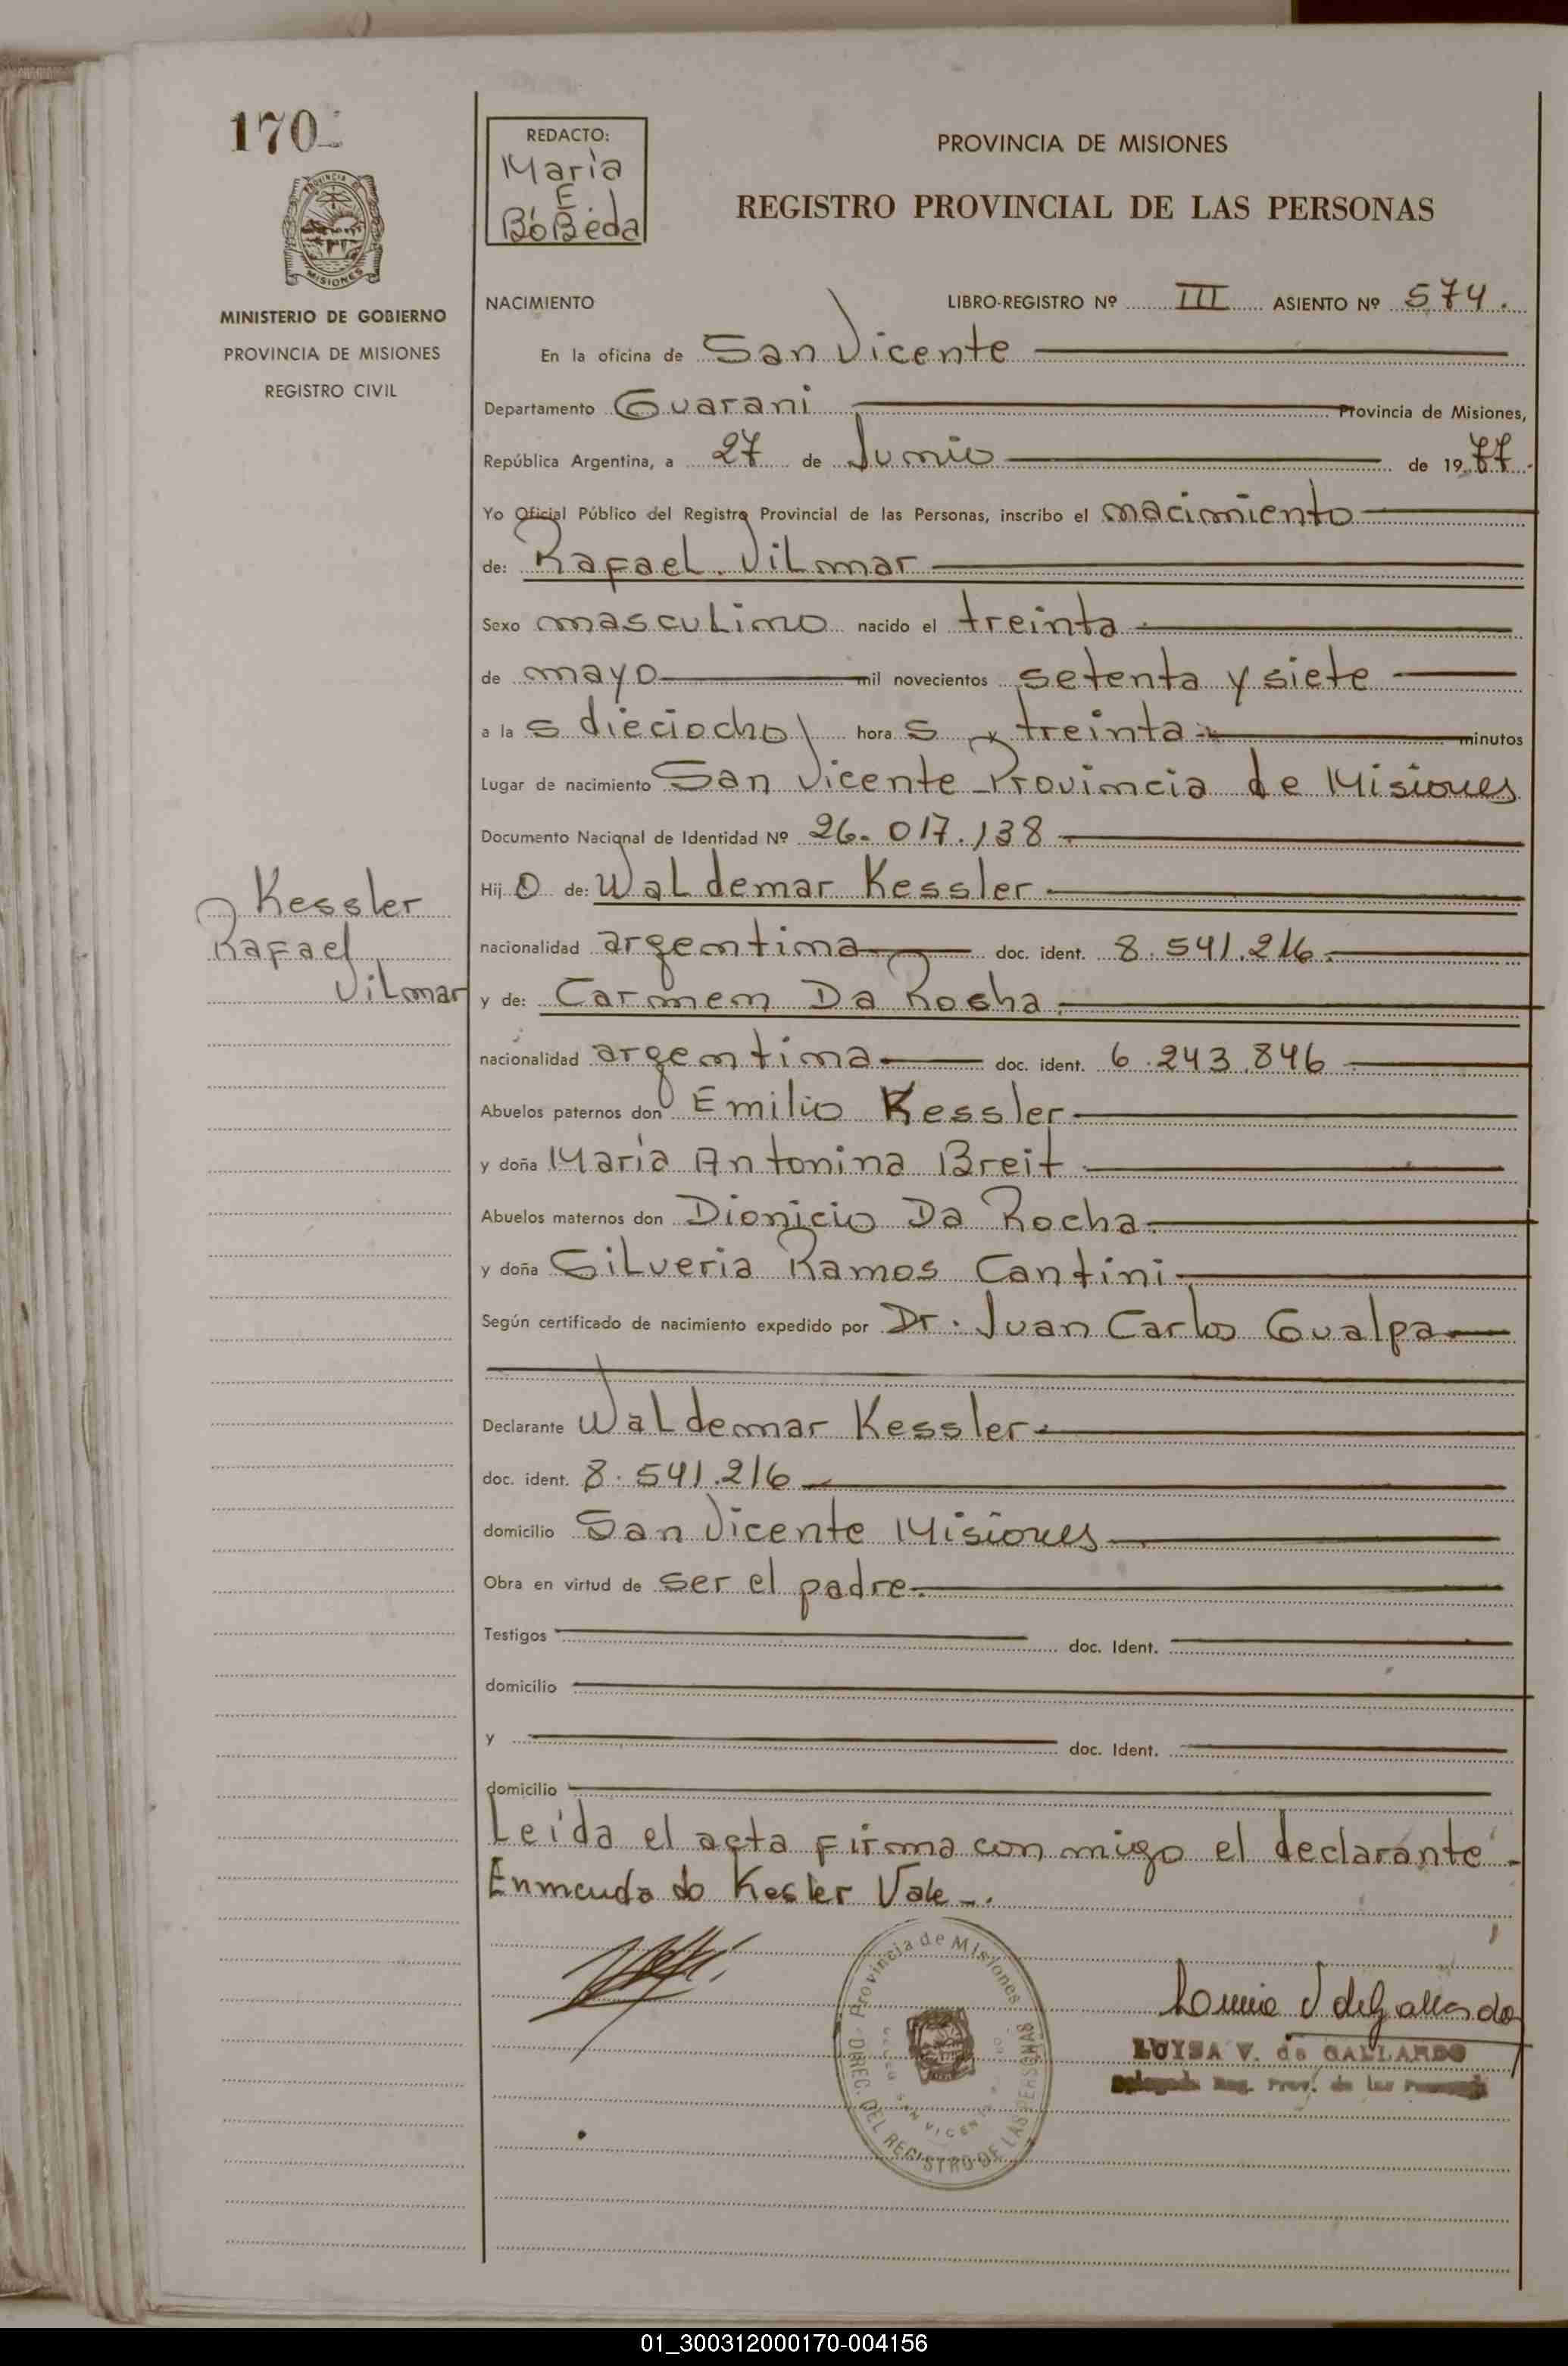 170
REDACTO:
Maria
E.
BóBeda
PROVINCIA DE MISIONES
REGISTRO PROVINCIAL DE LAS PERSONAS
MINISTERIO DE GOBIERNO
PROVINCIA DE MISIONES
REGISTRO CIVIL
NACIMIENTO LIBRO-REGISTRO Nº III ASIENTO Nº 574.
En la oficina de San Vicente
Departamento Guarani Provincia de Misiones,
República Argentina, a 27 de Junio de 1977.
Yo Oficial Público del Registro Provincial de las Personas, inscribo el nacimiento
de: Rafael Vilmar
Sexo masculino nacido el treinta
de mayo mil novecientos setenta y siete
a la s dieciocho hora s y treinta minutos
Lugar de nacimiento San Vicente Provincia de Misiones
Documento Nacional de Identidad Nº 26.017.138
Hij o de: Waldemar Kessler
Kessler
Rafael
Vilmar
nacionalidad argentina doc. ident. 8.541.216.
y de: Carmen Da Rosha
nacionalidad argentina doc. ident. 6.243.846
Abuelos paternos don Emilio Kessler
y doña María Antonina Breit
Abuelos maternos don Dionicio Da Rocha
y doña Silveria Ramos Cantini
Según certificado de nacimiento expedido por Dr. Juan Carlos Gualpa
Declarante Waldemar Kessler
doc. ident. 8.541.216
domicilio San Vicente Misiones
Obra en virtud de ser el padre.
Testigos doc. Ident.
domicilio
y doc. Ident.
domicilio
Leida el acta firma con migo el declarante.
Enmendado Kesler Vale
Provincia de Misiones
DIREC. DEL REGISTRO DE LAS PERSONAS
SAN VICENTE
MISIONES
LUISA V. de GALLARDO
Reg. Prov. de las
01_300312000170-004156